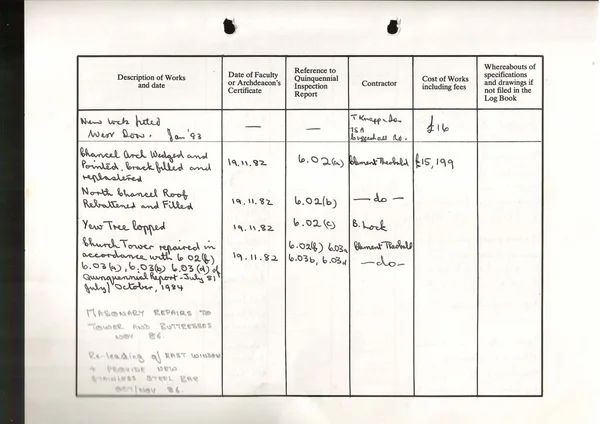 Description of Works
and date
Date of Faculty
or Archdeacon's
Certificate
Reference to
Quinquennial
Inspection
Report
Contractor
Cost of Works
including fees
Whereabouts of
specifications
and drawings if
not filed in the
Log Book
New lock fitted
West Door. Jan '83
—
—
T Knapp
75A
£16
Chancel Arch Wedged and
Pointed, crack filled and
replastered
19.11.82
6.02(a)
Clement Theobald
£15,199
North Chancel Roof
Rebattened and Filled
19.11.82
6.02(b)
— do —
Yew Tree lopped
19.11.82
6.02(c)
B. Lock
Church Tower repaired in
accordance with 6.02(f)
6.03(a), 6.03(b) 6.03(d) of
Quinquennial Report - July 81
July/October, 1984
19.11.82
6.02(f) 6.03a
6.03b, 6.03d
Clement Theobald
— do —
MASONARY REPAIRS TO
TOWER AND BUTTRESSES
NOV 86.
Re-leading of EAST WINDOW
+ PROVIDE NEW
STAINLESS STEEL BAR
OCT/NOV 86.